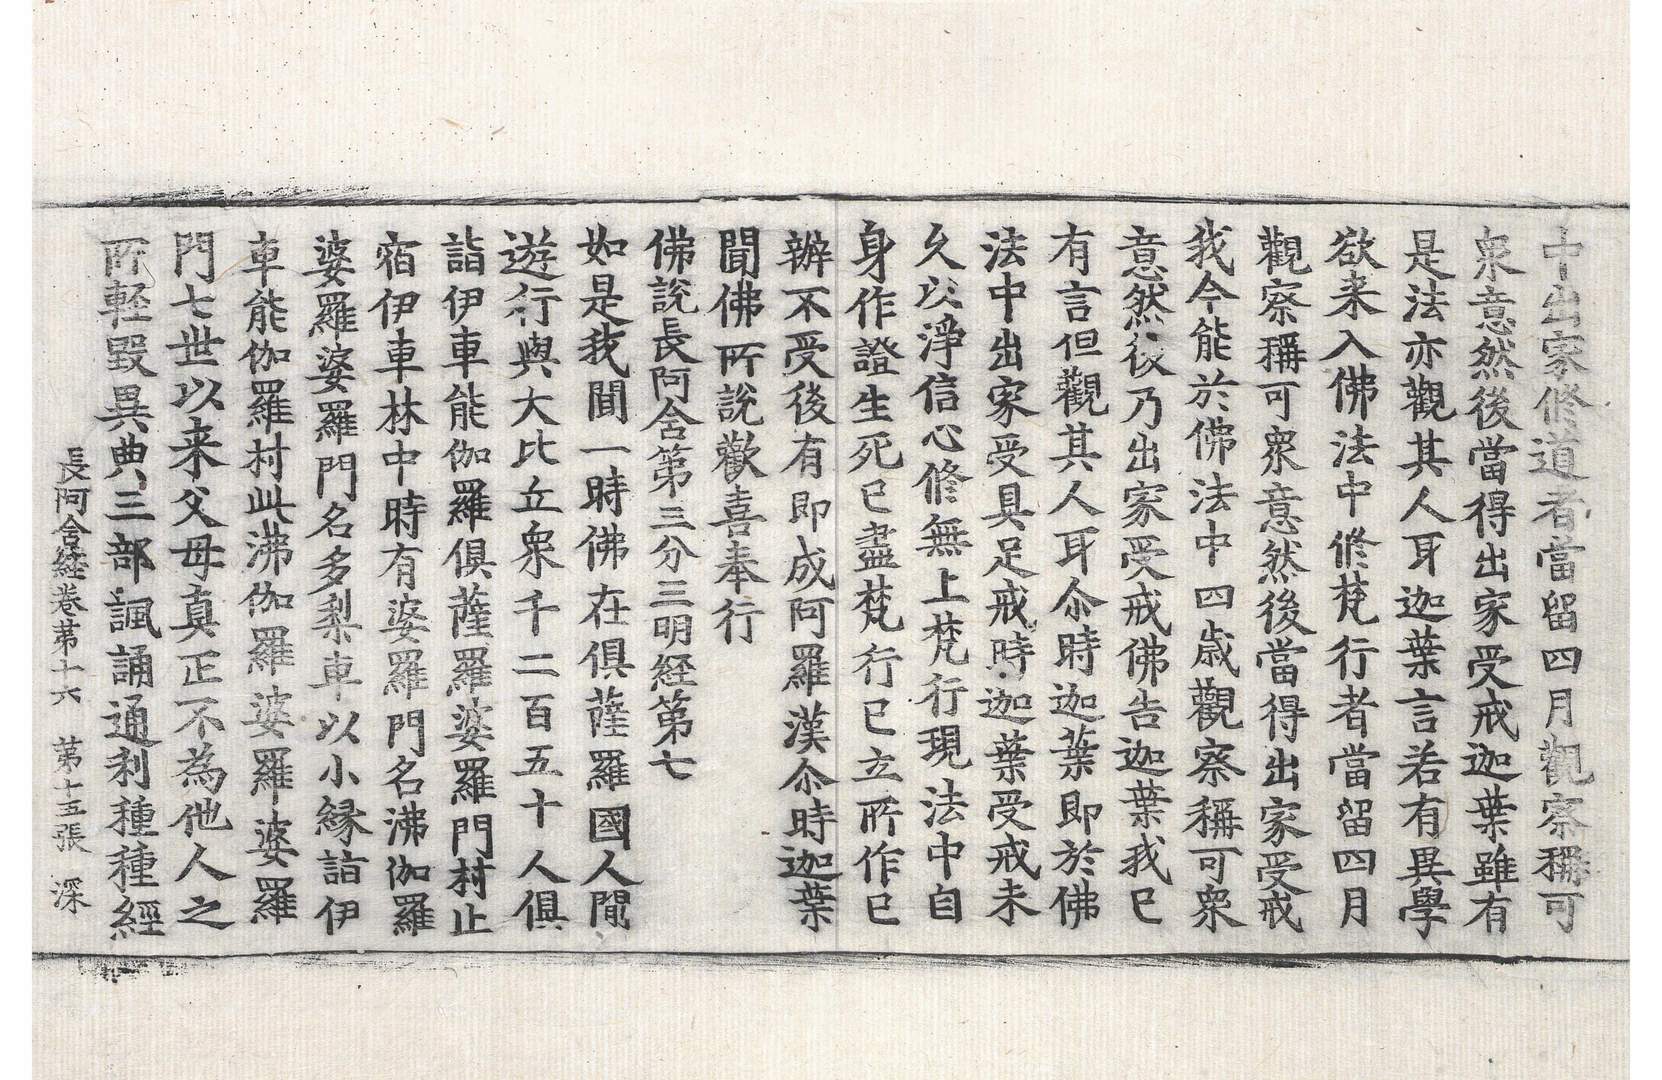 中出家修道者當留四月觀察稱可
衆意然後當得出家受戒迦葉雖有
是法亦觀其人耳迦葉言若有異學
欲来入佛法中修梵行者當留四月
觀察稱可衆意然後當得出家受戒
我今能於佛法中四歲觀察稱可衆
意然後乃出家受戒佛告迦葉我已
有言但觀其人耳尒時迦葉即於佛
法中出家受具足戒時迦葉受戒未
久以淨信心修無上梵行現法中自
身作證生死已盡梵行已立所作已
辦不受後有即成阿羅漢尒時迦葉
聞佛所說歡喜奉行
佛說長阿含第三分三明経第七
如是我聞一時佛在俱薩羅國人間
遊行與大比丘衆千二百五十人俱
詣伊車能伽羅俱薩羅婆羅門村止
宿伊車林中時有婆羅門名沸伽羅
婆羅婆羅門名多梨車以小緣詣伊
車能伽羅村此沸伽羅婆羅婆羅
門七世以来父母真正不為他人之
所輕毀異典三部諷誦通利種種經
長阿含経卷苐十六 苐十五張 深